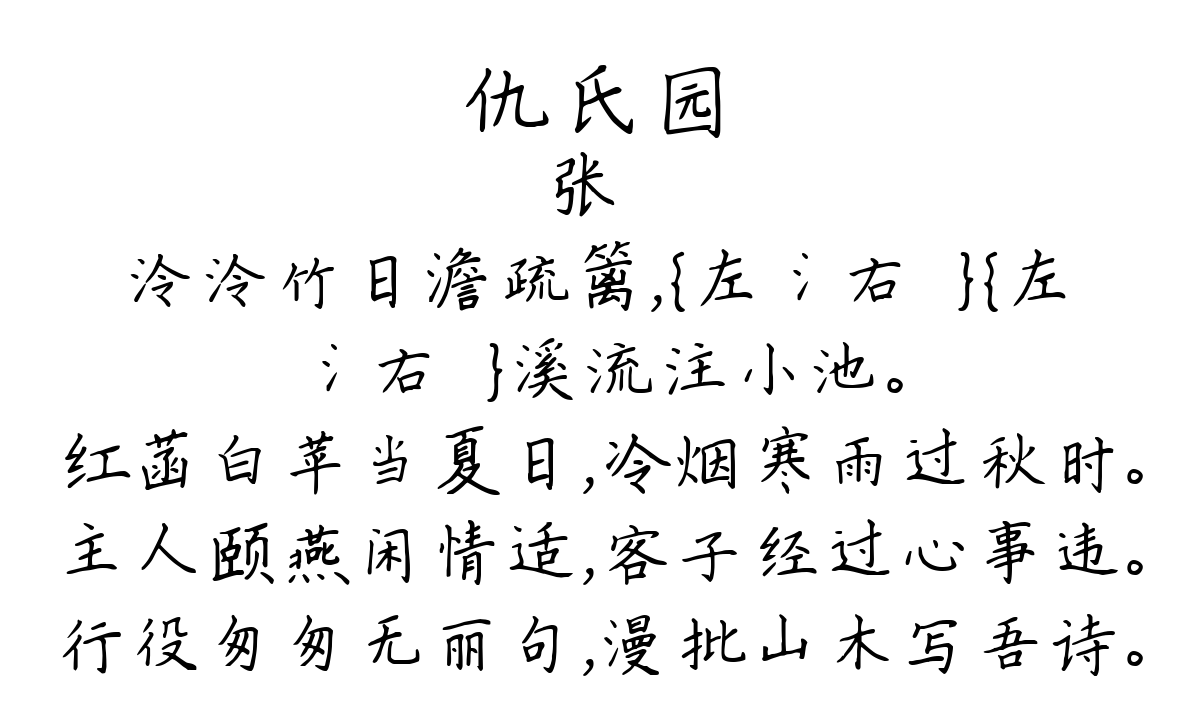 仇氏园
张
泠泠竹日澹疏篱,{左氵右 }{左
氵右 }溪流注小池。
红菡白苹当夏日,冷烟寒雨过秋时。
主人颐燕闲情适,客子经过心事违。
行役匆匆无丽句,漫批山木写吾诗。